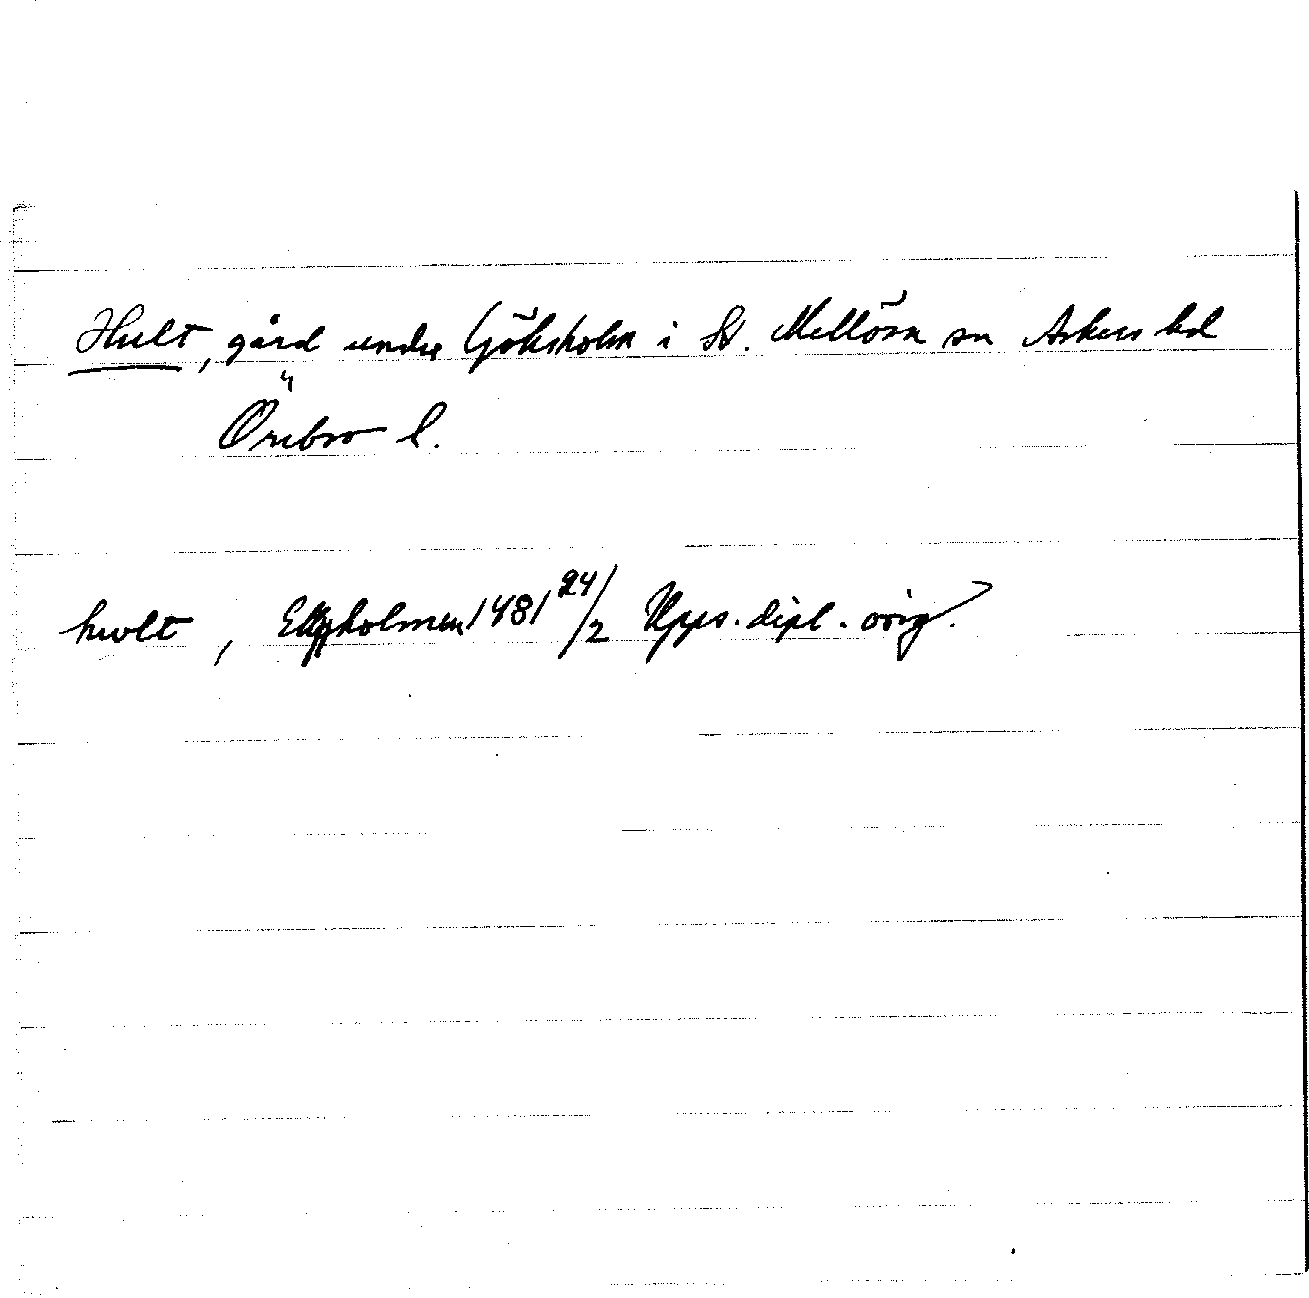 Hult, gård under Göksholm i St. Mellösa sn Askers hd
Örebro l.
hwlt, 1481 24/2 Upps. dipl. orig.